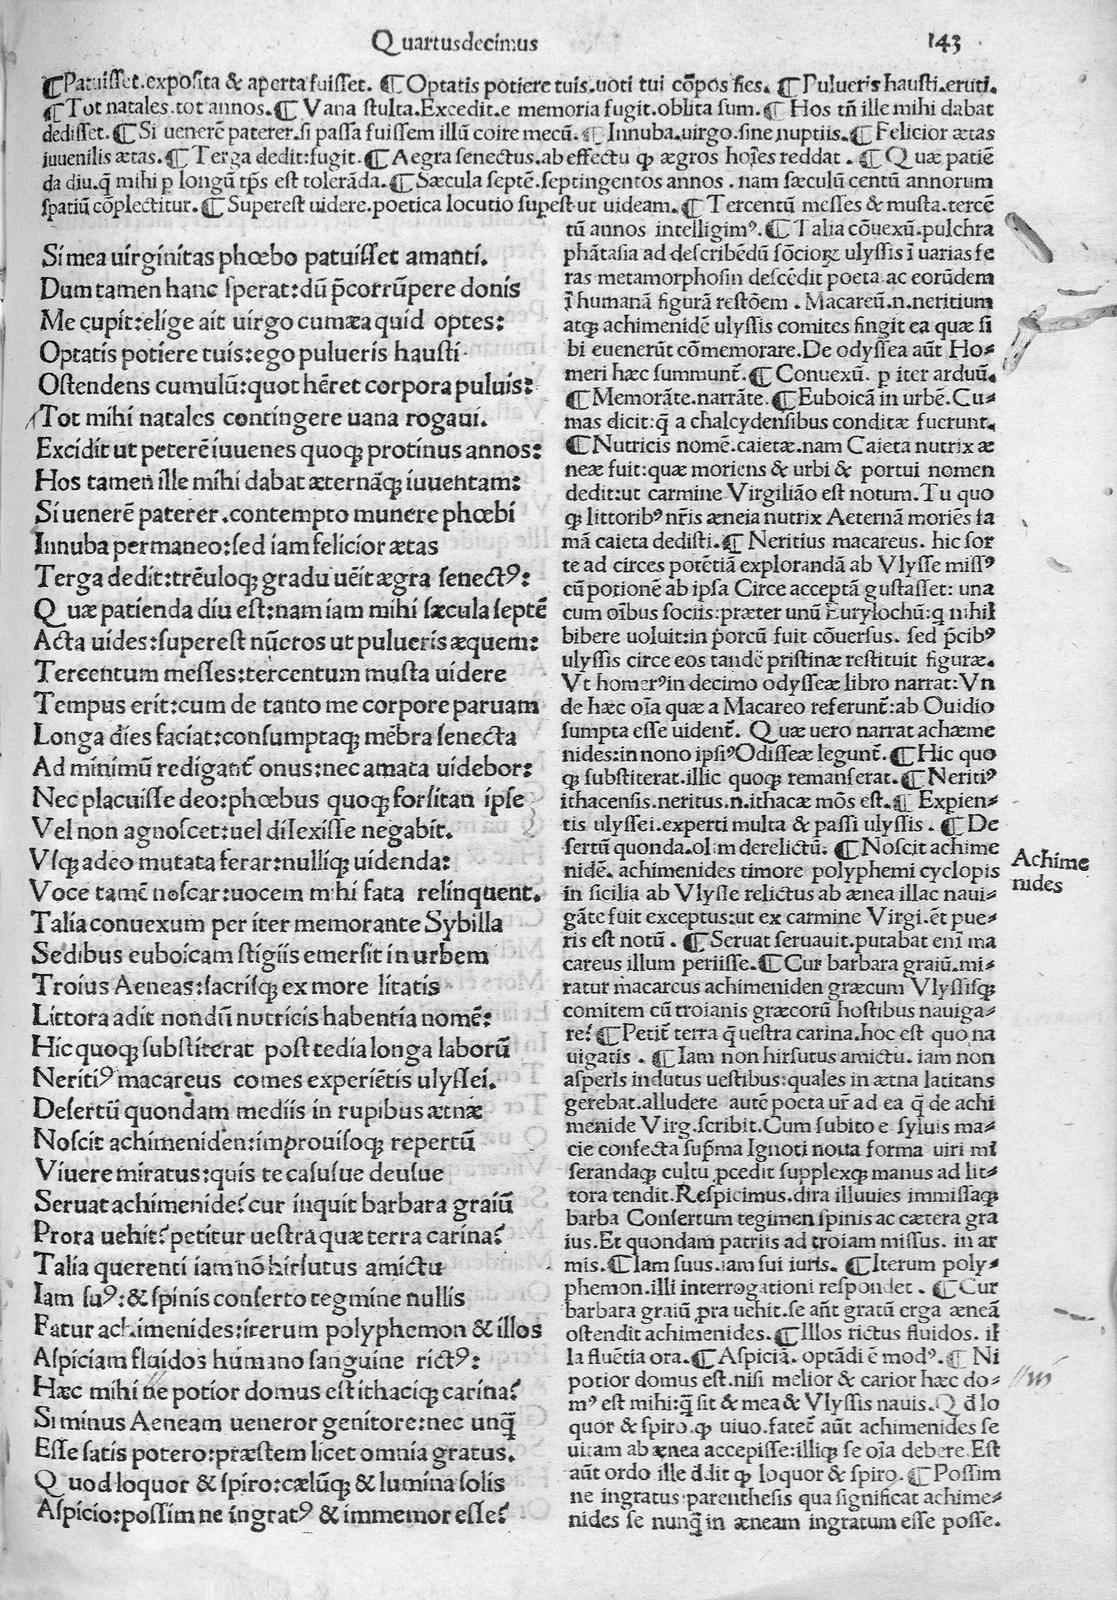 Quartusdecimus 143
¶Patuisset.exposita & aperta fuisset. ¶Optatis potiere tuis.uoti tui cōpos fies. ¶Pulueris hausti.eruti.
¶Tot natales.tot annos.¶ Vana stulta.Excedit.e memoria fugit.oblita sum.¶ Hos tn̄ ille mihi dabat
dedisset.¶Si uenerē paterer.si passa fuissem illū coire mecū.¶Innuba.uirgo.sine nuptiis.¶Felicior ætas
iuuenilis ætas.¶Terga dedit:fugit.¶Aegra senectus.ab effectu ꝙ ægros hoīes reddat .¶Quæ patiē
da diu.q̄ mihi p longū tp̄s est tolerāda.¶Sæcula septē.septingentos annos . nam sæculū centū annorum
spatiū cōplectitur.¶Superest uidere.poetica locutio supest ut uideam.¶Tercentū messes & musta.tercē
Si mea uirginitas phœbo patuisset amanti.
Dum tamen hanc sperat:dū p̄corrūpere donis
Me cupit:elige ait uirgo cumæa quid optes:
Optatis potiere tuis:ego pulueris hausti
Ostendens cumulū:quot hēret corpora puluis:
Tot mihi natales contingere uana rogaui.
Excidit ut peterē iuuenes quoqꝫ protinus annos:
Hos tamen ille mihi dabat æternāqꝫ iuuentam:
Si uenerē paterer.contempto munere phœbi
Innuba permaneo:sed iam felicior ætas
Terga dedit:trēuloqꝫ gradu uēit ægra senectꝰ:
Quæ patienda diu est:nam iam mihi sæcula septē
Acta uides:superest nūeros ut pulueris æquem:
Tercentum messes:tercentum musta uidere
Tempus erit:cum de tanto me corpore paruam
Longa dies faciat:consumptaqꝫ mēbra senecta
Ad minimū redigant̄ onus:nec amata uidebor:
Nec placuisse deo:phœbus quoqꝫ forsitan ipse
Vel non agnoscet:uel dilexisse negabit.
Vsqꝫ adeo mutata ferar:nulliqꝫ uidenda:
Voce tamē noscar:uocem mihi fata relinquent.
Talia conuexum per iter memorante Sybilla
Sedibus euboicam stigiis emersit in urbem
Troius Aeneas:sacrisqꝫ ex more litatis
Littora adit nondū nutricis habentia nomē:
Hic quoqꝫ substiterat post tedia longa laborū
Neritiꝰ macareus comes experiētis ulyssei.
Desertū quondam mediis in rupibus ætnæ
Noscit achimeniden:improuisoqꝫ repertū
Viuere miratus:quis te casusue deusue
Seruat achimenide? cur inquit barbara graiū
Prora uehit? petitur uestra quæ terra carina?
Talia querenti iam nō hirsutus amictu
Iam suꝰ:& spinis conserto tegmine nullis
Fatur achimenides:iterum polyphemon & illos
Aspiciam fluidos humano sanguine rictꝰ:
Hæc mihi ne potior domus est ithaciqꝫ carina?
Si minus Aeneam ueneror genitore:nec unq̄
Esse satis potero:præstem licet omnia gratus.
Quod loquor & spiro:cælūqꝫ & lumina solis
Aspicio:possim ne ingratꝰ & immemor esse?
tū annos intelligimꝰ.¶Talia cōuexū.pulchra
phātasia ad describēdū sōcioꝝ ulyssis ī uarias fe
ras metamorphosin descēdit poeta ac eorūdem
ī humanā figurā restōem . Macareū.n.neritium
atqꝫ achimenidē ulyssis comites fingit ea quæ si
bi euenerūt cōmemorare.De odyssea aūt Ho⸗
meri hæc summunt̄.¶Conuexū. p iter arduū.
¶Memorāte.narrāte.¶Euboicā in urbē.Cu⸗
mas dicit:q̄ a chalcydensibus conditæ fuerunt.
¶Nutricis nomē.caietæ.nam Caieta nutrix æ
neæ fuit:quæ moriens & urbi & portui nomen
dedit:ut carmine Virgilião est notum.Tu quo
qꝫ littoribꝰ nr̄is æneia nutrix Aeternā moriēs fa
mā caieta dedisti.¶Neritius macareus. hic for
te ad circes potētiā explorandā ab Vlysse missꝰ
cū potionē ab ipsa Circe acceptā gustasset: una
cum oībus sociis:præter unū Eurylochū:q nihil
bibere uoluit:in porcū fuit cōuersus. sed p̄cibꝰ
ulyssis circe eos tandē pristinæ restituit figuræ.
Vt homerꝰ in decimo odysseæ libro narrat:Vn
de hæc oīa quæ a Macareo referunt̄:ab Ouidio
sumpta esse uident̄. Quæ uero narrat achæme
nides:in nono ipsiꝰ Odisseæ legunt̄.¶Hic quo
qꝫ substiterat.illic quoqꝫ remanserat.¶Neritiꝰ
ithacensis.neritus.n.ithacæ mōs est.¶Expien⸗
tis ulyssei.experti multa & passi ulyssis .¶De
sertū quonda.olim derelictū. ¶Noscit achime
nidē. achimenides timore polyphemi cyclopis
in sicilia ab Vlysse relictus ab ænea illac naui⸗
gāte fuit exceptus:ut ex carmine Virgi.ēt pue⸗
ris est notū . ¶Seruat seruauit.putabat enī ma
careus illum periisse.¶Cur barbara graiū.mi⸗
ratur macarcus achimeniden græcum Vlyssisqꝫ
comitem cū troianis græcorū hostibus nauiga⸗
re?¶Petit̄ terra q̄ uestra carina.hoc est quo na
uigatis . ¶Iam non hirsutus amictu. iam non
asperis indutus uestibus:quales in ætna latitans
gerebat.alludere autē poeta ur̄ ad ea q̄ de achi
menide Virg.scribit.Cum subito e syluis ma⸗
cie confecta sup̄ma Ignoti noua forma uiri mi
serandaqꝫ cultu ꝓcedit supplexqꝫ manus ad lit⸗
tora tendit.Respicimus.dira illuuies immissaqꝫ
barba Consertum tegimen spinis ac cætera gra
ius.Et quondam patriis ad troiam missus. in ar
mis.¶Iam suus.iam sui iuris. ¶Iterum poly⸗
phemon.illi interrogationi respondet . ¶Cur
barbara graiū ꝓra uehit.se aūt gratū erga æneā
ostendit achimenides.¶Illos rictus fluidos. il
la fluētia ora.¶Aspiciā. optādi ē modꝰ.¶ Ni
potior domus est.nisi melior & carior hæc do⸗
mꝰ est mihi:q̄ sit & mea & Vlyssis nauis.Qd̄ lo
quor & spiro.ꝙ uiuo.fatet̄ aūt achimenides se
uitam ab ænea accepisse:illiqꝫ se oīa debere.Est
aūt ordo ille ddit ꝙ loquor & spiro.¶Possim
ne ingratus:parenthesis qua significat achime⸗
nides se nunq̄ in æneam ingratum esse posse.
Achime
nides